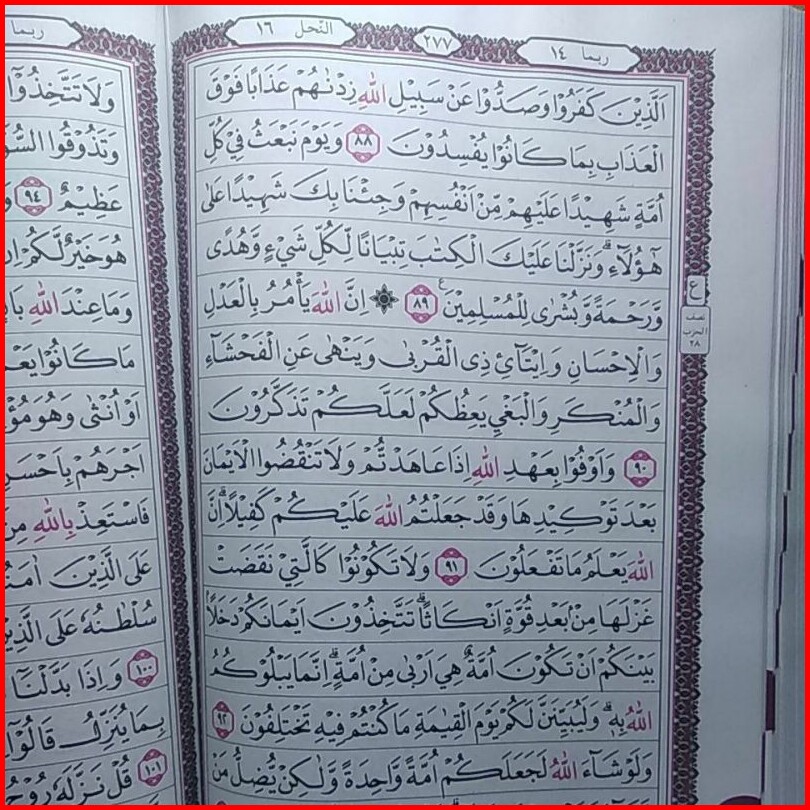 ربما ١٤
٢٧٧
النّحل ١٦
اَلَّذِيْنَ كَفَرُوْا وَصَدُّوْا عَنْ سَبِيْلِ اللهِ زِدْنٰهُمْ عَذَابًا فَوْقَ
الْعَذَابِ بِمَا كَانُوْا يُفْسِدُوْنَ ٨٨ وَيَوْمَ نَبْعَثُ فِيْ كُلِّ
اُمَّةٍ شَهِيْدًا عَلَيْهِمْ مِّنْ اَنْفُسِهِمْ وَجِئْنَا بِكَ شَهِيْدًا عَلٰى
هٰٓؤُلَاۤءِۗ وَنَزَّلْنَا عَلَيْكَ الْكِتٰبَ تِبْيَانًا لِّكُلِّ شَيْءٍ وَّهُدًى
وَّرَحْمَةً وَّبُشْرٰى لِلْمُسْلِمِيْنَ ࣖ ٨٩ ۞ اِنَّ اللهَ يَأْمُرُ بِالْعَدْلِ
وَالْاِحْسَانِ وَاِيْتَاۤئِ ذِى الْقُرْبٰى وَيَنْهٰى عَنِ الْفَحْشَاۤءِ
وَالْمُنْكَرِ وَالْبَغْيِ يَعِظُكُمْ لَعَلَّكُمْ تَذَكَّرُوْنَ
٩٠ وَاَوْفُوْا بِعَهْدِ اللهِ اِذَا عَاهَدْتُّمْ وَلَا تَنْقُضُوا الْاَيْمَانَ
بَعْدَ تَوْكِيْدِهَا وَقَدْ جَعَلْتُمُ اللهَ عَلَيْكُمْ كَفِيْلًاۗ اِنَّ
اللهَ يَعْلَمُ مَا تَفْعَلُوْنَ ٩١ وَلَا تَكُوْنُوْا كَالَّتِيْ نَقَضَتْ
غَزْلَهَا مِنْۢ بَعْدِ قُوَّةٍ اَنْكَاثًاۗ تَتَّخِذُوْنَ اَيْمَانَكُمْ دَخَلًاۢ
بَيْنَكُمْ اَنْ تَكُوْنَ اُمَّةٌ هِيَ اَرْبٰى مِنْ اُمَّةٍۗ اِنَّمَا يَبْلُوْكُمُ
اللهُ بِهٖۗ وَلَيُبَيِّنَنَّ لَكُمْ يَوْمَ الْقِيٰمَةِ مَا كُنْتُمْ فِيْهِ تَخْتَلِفُوْنَ ٩٢
وَلَوْ شَاۤءَ اللهُ لَجَعَلَكُمْ اُمَّةً وَّاحِدَةً وَّلٰكِنْ يُّضِلُّ مَنْ
ع
نصف
الحزب
٢٨
ربما
وَلَا تَتَّخِذُوْٓا
وَتَذُوْقُوا
عَظِيْمٌ ٩٤
هُوَ خَيْرٌ لَّكُمْ
وَمَا عِنْدَ اللهِ
مَا كَانُوْا
اَوْ اُنْثٰى وَهُوَ
اَجْرَهُمْ
فَاسْتَعِذْ بِاللهِ
عَلَى الَّذِيْنَ
سُلْطٰنُهٗ عَلَى
١٠٠ وَاِذَا بَدَّلْنَآ
بِمَا يُنَزِّلُ قَالُوْٓا
١٠١ قُلْ نَزَّلَهٗ